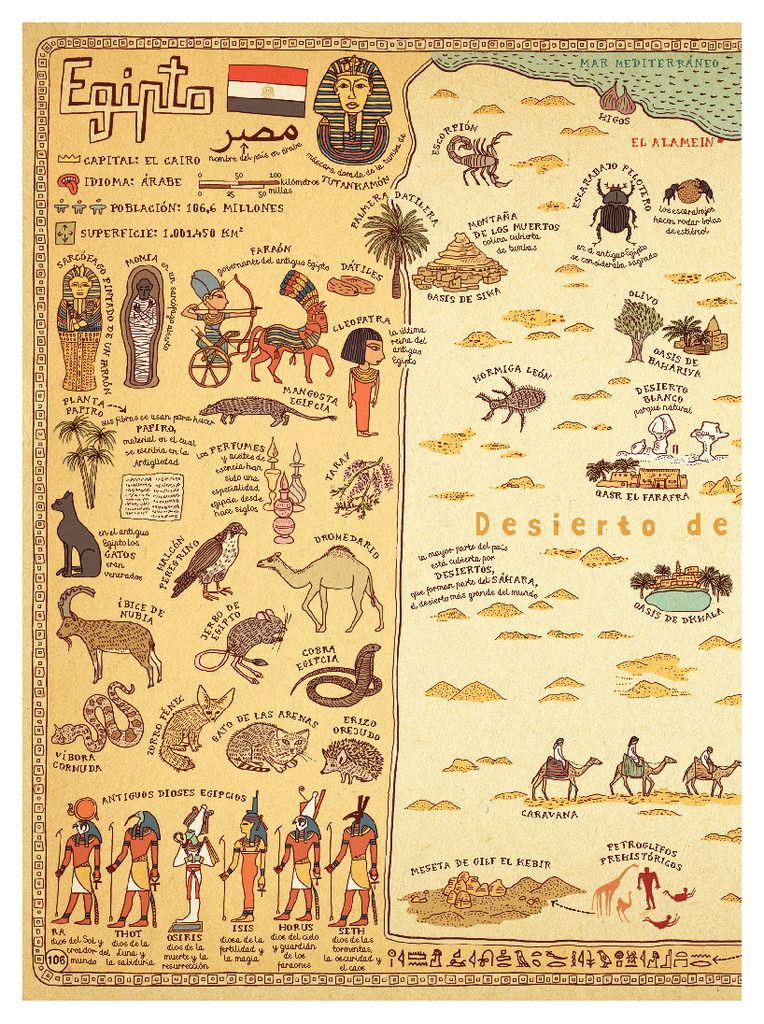 Egipto
مصر
nombre del país en árabe
máscara dorada de la tumba de
TUTANKAMÓN
CAPITAL: EL CAIRO
IDIOMA: ÁRABE
0 50 100 kilómetros
0 25 50 millas
POBLACIÓN: 106,6 MILLONES
SUPERFICIE: 1.001.450 KM²
SARCÓFAGO PINTADO DE UN FARAÓN
MOMIA
en un sarcófago abierto
FARAÓN
gobernante del antiguo Egipto
DÁTILES
PALMERA DATILERA
CLEOPATRA
la última
reina del
antiguo
Egipto
MANGOSTA
EGIPCIA
PLANTA
PAPIRO
sus fibras se usan para hacer
PAPIRO,
material en el cual
se escribía en la
Antigüedad
LOS PERFUMES
y aceites de
esencia han
sido una
especialidad
egipcia desde
hace siglos
TARAY
en el antiguo
Egipto los
GATOS
eran
venerados
HALCÓN
PEREGRINO
DROMEDARIO
ÍBICE DE
NUBIA
JERBO DE
EGIPTO
COBRA
EGIPCIA
VÍBORA
CORNUDA
ZORRO FÉNEC
GATO DE LAS ARENAS
ERIZO
OREJUDO
ANTIGUOS DIOSES EGIPCIOS
RA
dios del Sol y
creador del
mundo
THOT
dios de la
Luna y
la sabiduría
OSIRIS
dios de la
muerte y la
resurrección
ISIS
diosa de la
fertilidad y
la magia
HORUS
dios del cielo
y guardián
de los
faraones
SETH
dios de las
tormentas,
la oscuridad y
el caos
106
MAR MEDITERRÁNEO
HIGOS
EL ALAMEIN
ESCORPIÓN
ESCARABAJO PELOTERO
los escarabajos
hacen rodar bolas
de estiércol
en el antiguo Egipto
se consideraba sagrado
MONTAÑA
DE LOS MUERTOS
colina cubierta
de tumbas
OASIS DE SIWA
OLIVO
OASIS DE
BAHARIYA
HORMIGA LEÓN
DESIERTO
BLANCO
parque natural
QASR EL FARAFRA
Desierto de
la mayor parte del país
está cubierta por
DESIERTOS,
que forman parte del SÁHARA,
el desierto más grande del mundo
OASIS DE DKHALA
CARAVANA
MESETA DE GILF EL KEBIR
PETROGLIFOS
PREHISTÓRICOS